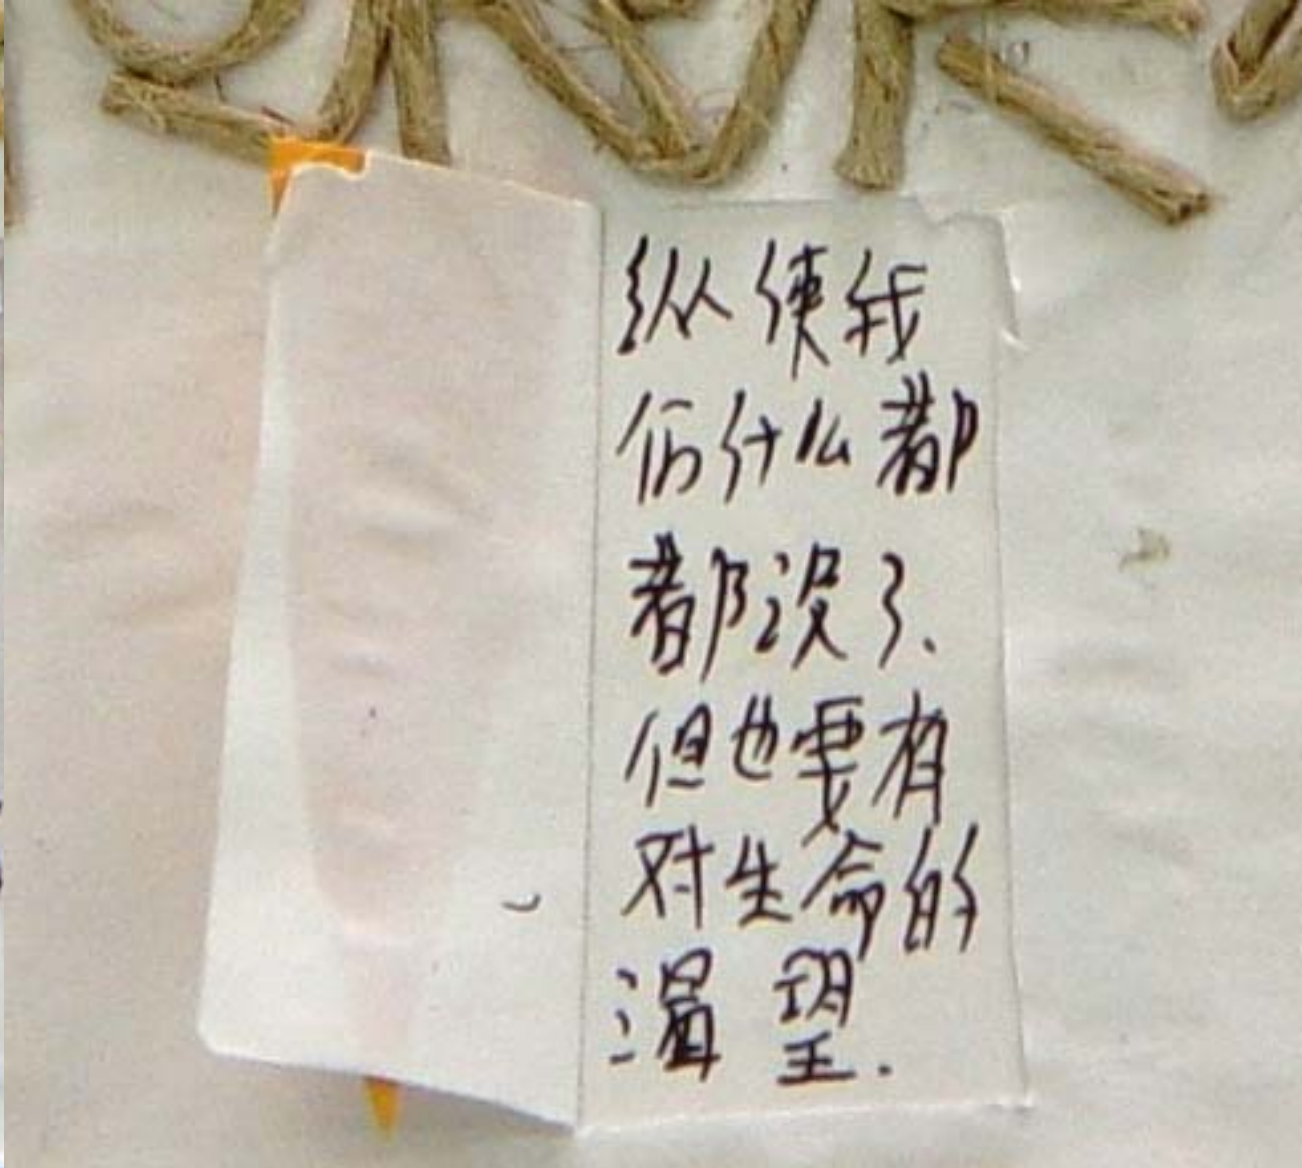 纵使我
仍什么都
都没了、
但也要有
对生命的
渴望.